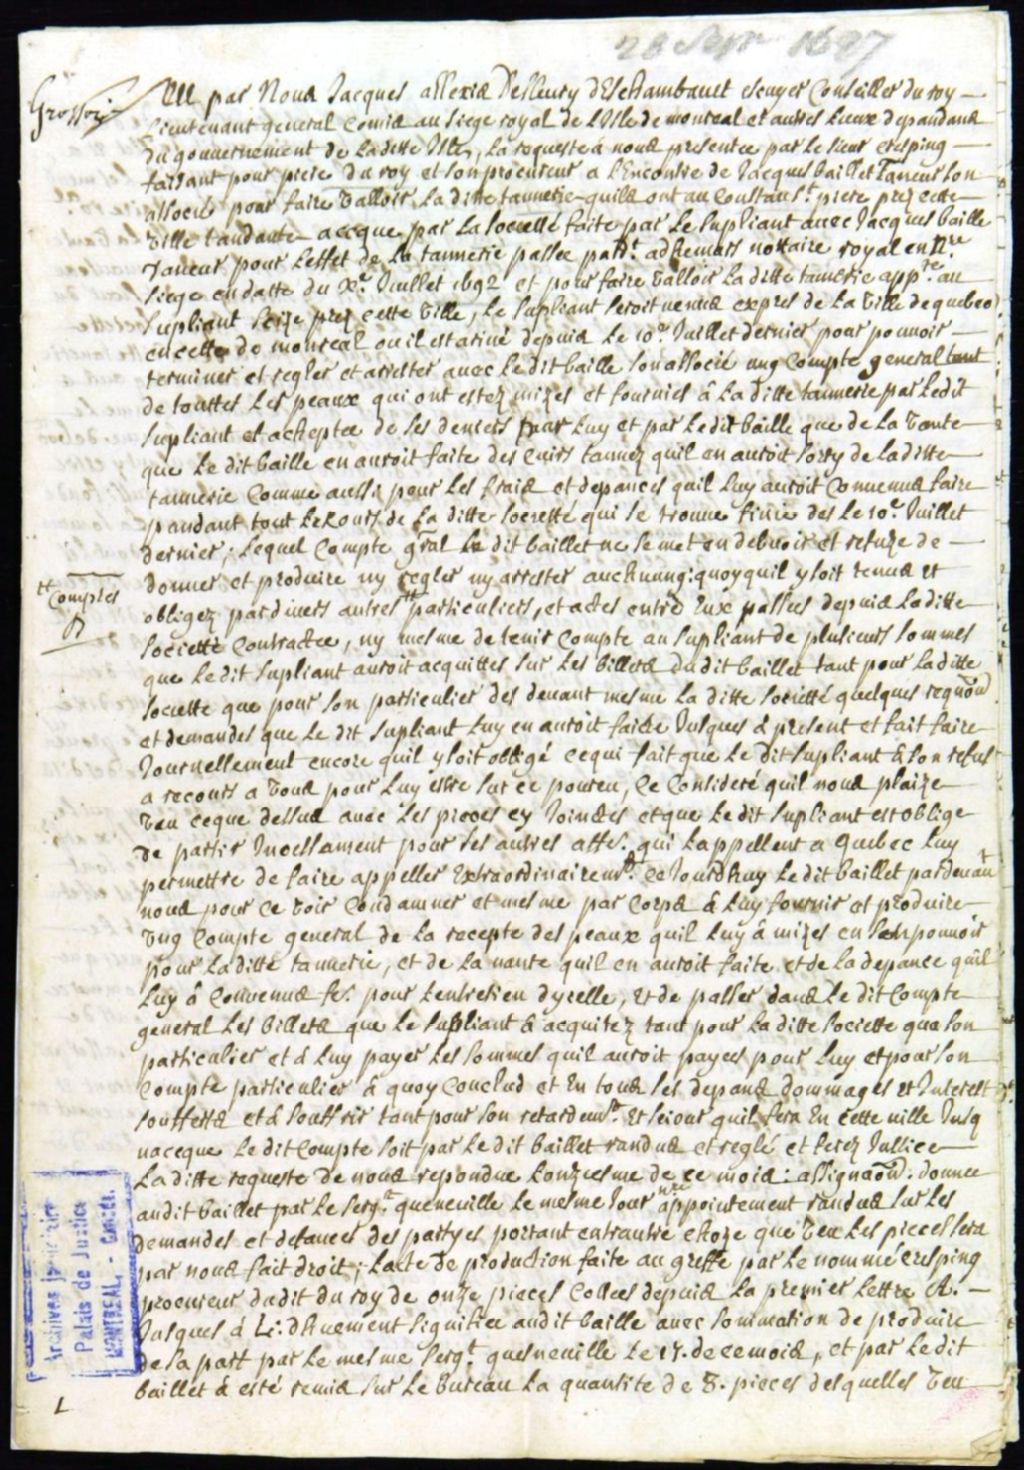 28 Sepr 1697
Grossoié
Veu par Nous Jacques allexis Defleury Deschambault escuyer Conseiller du roy
Lieutenant general Comis au siege royal de L'Isle de montreal et autres Lieux depandans
du gouvernement de La ditte Isle, La requeste a nous presentee par le sieur Cresping
faisant pour piere du roy et son procureur a l'Encontre de Jacques baillet Taneur son
associé pour faire valloir La ditte tannerie quils ont au Constans St. piere prez cette
ville tandante aceque par La societté faite par le supliant avec Jacques baille
Taneur pour Leffet de La tannerie passée par Mt. adhemars nottaire royal en Nre.
siege en datte du Xe. Juillet 1692 et pour faire valloir La ditte tannerie appte. au
supliant size prez cette ville, Le supliant seroit venus expres de La ville de quebec
en cette de montreal ou il est arivé depuis Le 10e. Juillet dernier pour pouvoir
terminer et regler et arrester avec Le dit baille son associé ung Compte general tant
de touttes Les peaux qui ont estez mizes et fournies â La ditte tannerie par Ledit
supliant et acheptee de ses deniers par Luy et par Le dit baille que de La vante
que Le dit baille en auroit faite des Cuirs tannez quil en auroit sorty de La ditte
tannerie Comme aussi pour Les fraix et depances quil Luy auroit Convenus faire
pandant tout Le Cours de La ditte societté qui se trouve finie des Le 10e. Juillet
dernier; Lequel Compte gnral Le dit baillet ne se met en debvoir et refuze de
donner et produire ny regler ny arrester auchunnq: quoy quil y soit tenus et
tt Comptes
obligez par divers autres tt particuliers, et actes entre Eux passes depuis La ditte
societté Contractee, ny mesme de tenir Compte au supliant de plusieurs sommes
que Le dit supliant auroit acquittes sur Les billets du dit baillet tant pour La ditte
societte que pour son particulier des devant mesme La ditte societté quelques requons
et demandes que Le dit supliant Luy en auroit faites Jusques â present et fait faire
Journellement encore quil y soit obligé ce qui fait que Le Dit supliant â son refus
a recours a vous pour Luy estre sur ce pourvu, Ce Consideré quil nous plaize
veu ceque dessus avec Les pieces cy Jointes et que Le dit supliant est oblige
de partir Incessament pour ses autres affes. qui Lappellent a quebec Luy
permettre de faire appeller Extraordinairemt. Ce Jourdhuy Le dit baillet pardevant
nous pour ce voir Condamner et mesme par Corps â Luy fournir et produire
Ung Compte general de La recepte des peaux quil Luy â mizes en son pouvoir
pour La ditte tannerie, et de La vante quil en auroit faite et de La depance quil
Luy â Convenus fe. pour Lentretien dycelle, Et de passer dans Le dit Compte
general Les billets que Le supliant â acquitez tant pour La ditte societte que son
particulier et â Luy payer Les sommes quil auroit payees pour Luy et pour son
Compte particulier â quoy Conclud et En tous Les depans dommages et Interest
soufferts et â souffrir tant pour son retardemt. Et sejour quil fera En cette ville Jusq
naceque Le dit Compte soit par Le dit baillet randus et reglé et ferez Justice
La ditte requeste de nous repondue Lonzuesme de ce mois: assignaon: donnee
audit baillet par Le sergt. queneville Le mesme Jour nre appointement randus sur Les
demandes et defances des partyes portant entrautre choze que veu Les pieces sera
par nous fait droit; Lacte de production faite au greffe par Le nommé Cresping
procureur dudit du roy de onze pieces Cottees depuis La premier Lettre A.
Jusques â L: dhuement signifiee audit baille avec sommation de produire
de sa part par Le mesme sergt. quesneville Le 17. de ce mois, et par Le dit
baillet â esté remis sur Le bureau La quantite de 8. pieces desquelles veu
Archives Judiciaires
Palais de Justice
MONTREAL, - Canada.
1